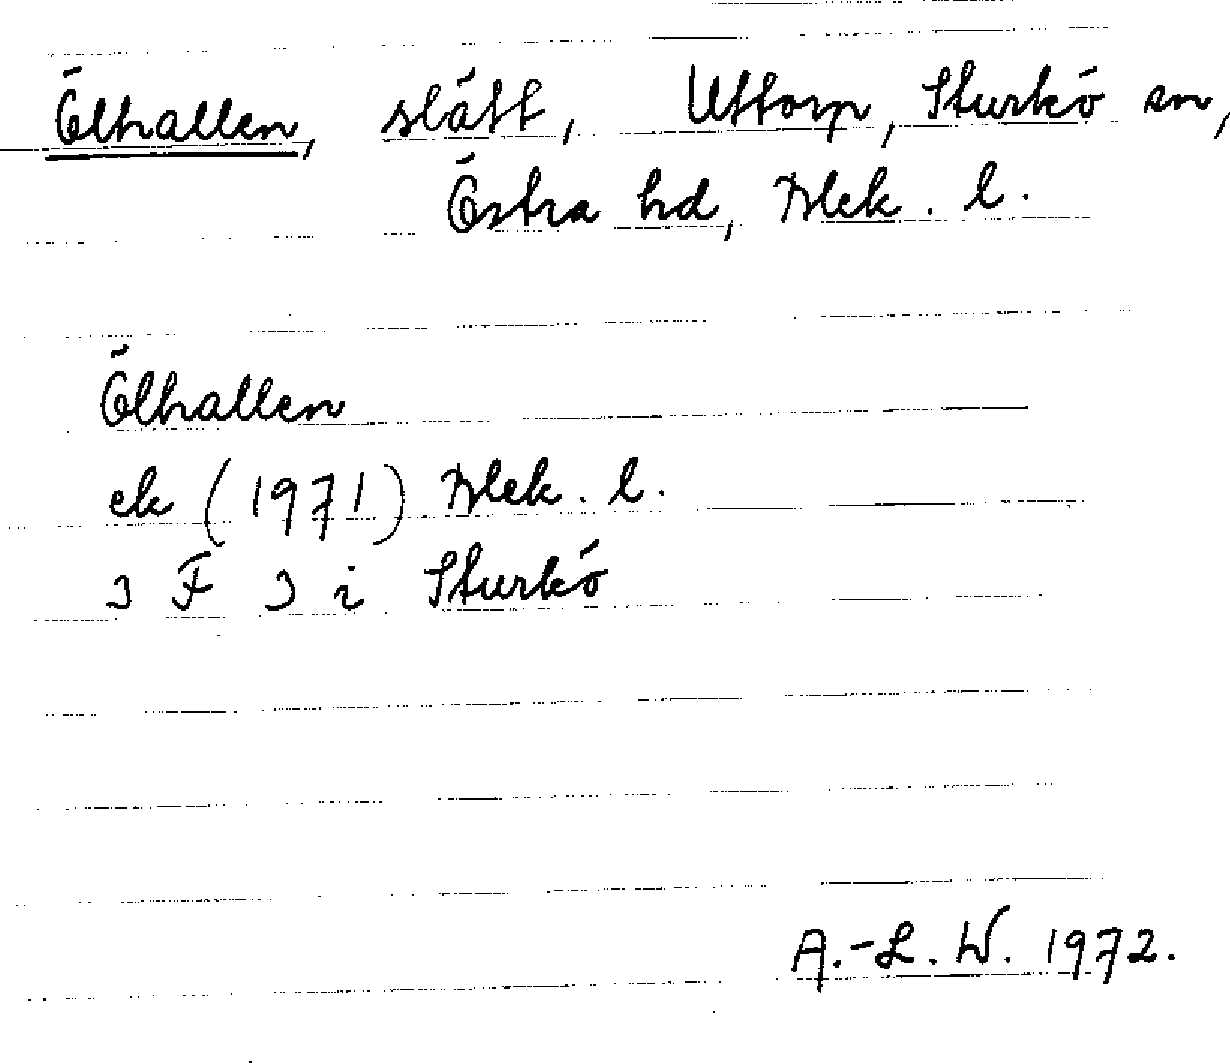 Ölhallen, slätt, Uttorp, Sturkö sn,
Östra hd, Blek. l.
Ölhallen
ek (1971) Blek. l.
3 F 3 i Sturkö
A.-L. W. 1972.